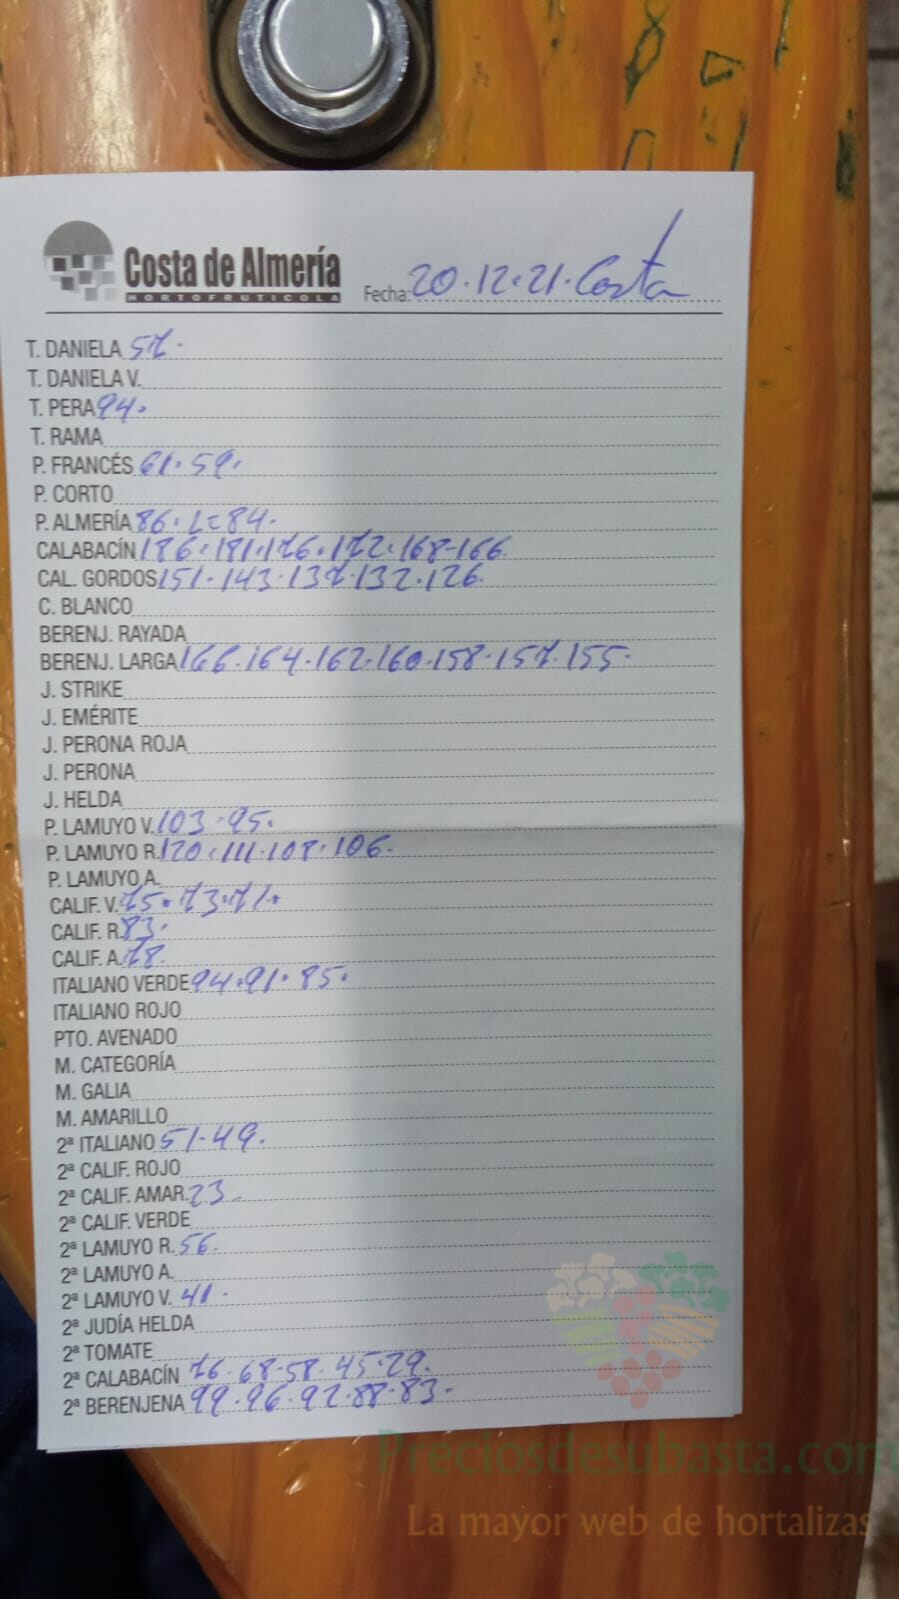 Costa de Almería
HORTOFRUTICOLA
Fecha: 20.12.21. Costa
T. DANIELA 57.
T. DANIELA V.
T. PERA 94.
T. RAMA
P. FRANCÉS 61. 59.
P. CORTO
P. ALMERÍA 86. L=84.
CALABACÍN 186. 181. 176. 172. 168-166.
CAL. GORDOS 151. 143. 137. 132. 126.
C. BLANCO
BERENJ. RAYADA
BERENJ. LARGA 166. 164. 162. 160. 158. 157. 155.
J. STRIKE
J. EMÉRITE
J. PERONA ROJA
J. PERONA
J. HELDA
P. LAMUYO V. 103. 95.
P. LAMUYO R. 120. 111. 108. 106.
P. LAMUYO A.
CALIF. V. 75. 73. 71.
CALIF. R. 83.
CALIF. A. 78.
ITALIANO VERDE 94. 91. 85.
ITALIANO ROJO
PTO. AVENADO
M. CATEGORÍA
M. GALIA
M. AMARILLO
2ª ITALIANO 51. 49.
2ª CALIF. ROJO
2ª CALIF. AMAR. 23.
2ª CALIF. VERDE
2ª LAMUYO R. 56.
2ª LAMUYO A.
2ª LAMUYO V. 41.
2ª JUDÍA HELDA
2ª TOMATE
2ª CALABACÍN 76. 68. 58. 45. 29.
2ª BERENJENA 99. 96. 92. 88. 83.
Preciosdesubasta.com
La mayor web de hortalizas